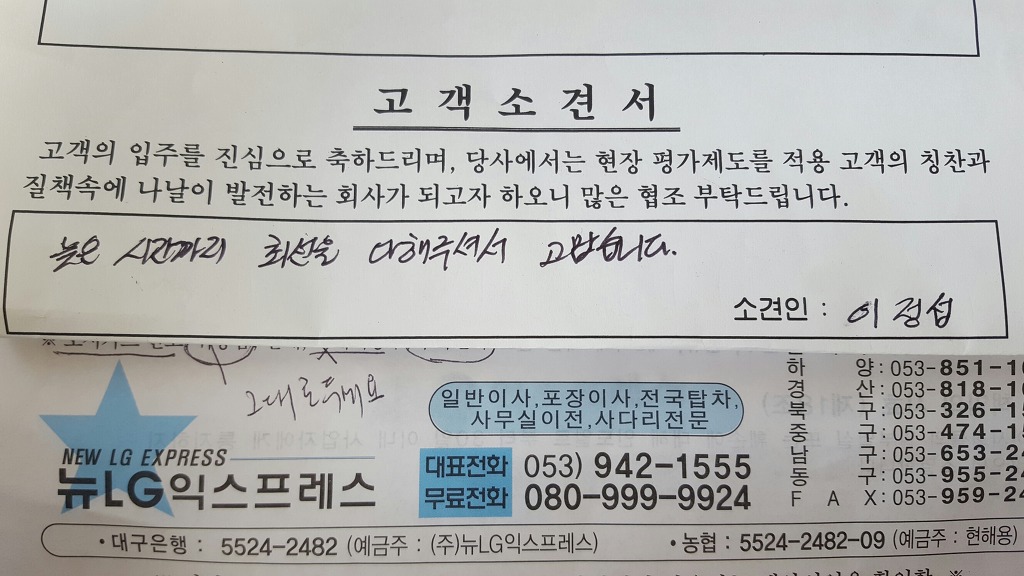 고객소견서
고객의 입주를 진심으로 축하드리며, 당사에서는 현장 평가제도를 적용 고객의 칭찬과
질책속에 나날이 발전하는 회사가 되고자 하오니 많은 협조 부탁드립니다.
늦은 시간까지 최선을 다해주셔서 고맙습니다.
소견인 : 이정섭
그대로두세요
일반이사,포장이사,전국탑차,
사무실이전,사다리전문
NEW LG EXPRESS
뉴LG익스프레스
대표전화 053) 942-1555
무료전화 080-999-9924
하 양:053-851-1
경 산:053-818-1
북 구:053-326-1
중 구:053-474-1
남 구:053-653-2
동 구:053-955-2
F A X:053-959-2
•대구은행 : 5524-2482 (예금주 : (주)뉴LG익스프레스) •농협 : 5524-2482-09 (예금주 : 현해용)